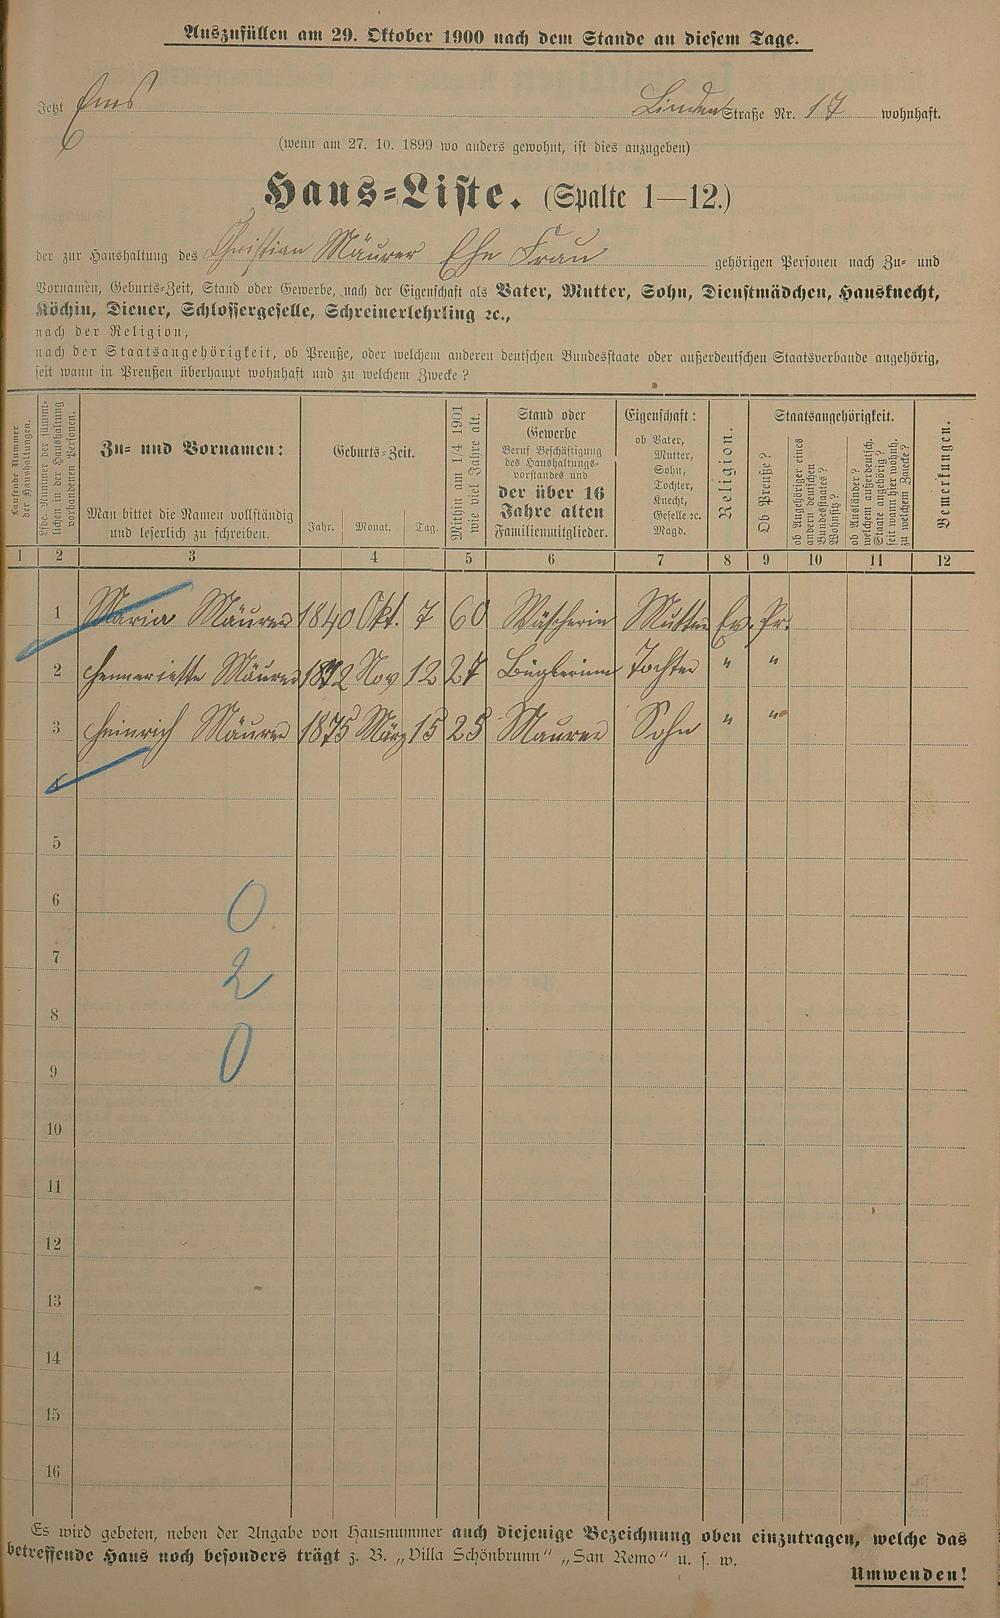 Auszufüllen am 29. Oktober 1900 nach dem Stande an diesem Tage.
Jetzt Ems Linden Straße Nr. 17 wohnhaft.
(wenn am 27. 10. 1899 wo anders gewohnt, ist dies anzugeben)
Haus-Liste. (Spalte 1—12.)
der zur Haushaltung des Christian Mäurer Ehe Frau gehörigen Personen nach Zu- und
Vornamen, Geburts-Zeit, Stand oder Gewerbe, nach der Eigenschaft als Vater, Mutter, Sohn, Dienstmädchen, Hausknecht,
Köchin, Diener, Schlossergeselle, Schreinerlehrling ꝛc.,
nach der Religion,
nach der Staatsangehörigkeit, ob Preuße, oder welchem anderen deutschen Bundesstaate oder außerdeutschen Staatsverbande angehörig,
seit wann in Preußen überhaupt wohnhaft und zu welchem Zwecke?
Laufende Nummer
der Haushaltungen.
Lfde. Nummer der sämmt-
lichen in der Haushaltung
vorhandenen Personen.
Zu- und Vornamen:
Man bittet die Namen vollständig
und leserlich zu schreiben.
Geburts-Zeit.
Jahr. Monat. Tag.
Mithin am 1/4 1901
wie viel Jahre alt.
Stand oder
Gewerbe
Beruf Beschäftigung
des Haushaltungs-
vorstandes und
der über 16
Jahre alten
Familienmitglieder.
Eigenschaft:
ob Vater,
Mutter,
Sohn,
Tochter,
Knecht,
Geselle ꝛc.
Magd.
Religion.
Staatsangehörigkeit.
Ob Preuße?
ob Angehöriger eines
andern deutschen
Bundesstaates?
Wohnsitz?
ob Ausländer?
welchem außerdeutsch.
Staate angehörig?
seit wann hier wohnh.
zu welchem Zwecke?
Bemerkungen.
1 2 3 4 5 6 7 8 9 10 11 12
1 Maria Mäurer 1840 Okt. 7 60 Wäscherin Mutter Ev. Pr.
2 Henneriette Mäurer 1872 Nov 12 27 Büglerinn Tochter " "
3 Heinrich Mäurer 1875 März 15 25 Maurer Sohn " "
4
5
6
0
7
2
8
0
9
10
11
12
13
14
15
16
Es wird gebeten, neben der Angabe von Hausnummer auch diejenige Bezeichnung oben einzutragen, welche das
betreffende Haus noch besonders trägt z. B. „Villa Schönbrunn“ „San Remo“ u. s. w.
Umwenden!